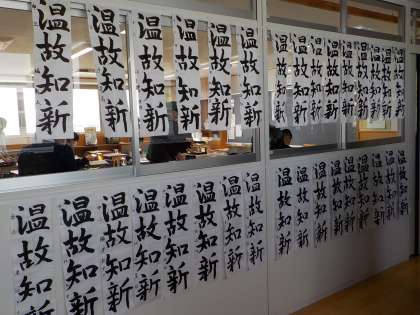 温故知新
温故知新
温故知新
温故知新
温故知新
温故知新
温故知新
温故知新
温故知新
温故知新
温故知新
温故知新
温故知新
温故知新
温故知新
温故知新
温故知新
温故知新
温故知新
温故知新
温故知新
温故知新
温故知新
温故知新
温故知新
温故知新
温故知新
温故知新
温故知新
温故知新
温故知新
温故知新